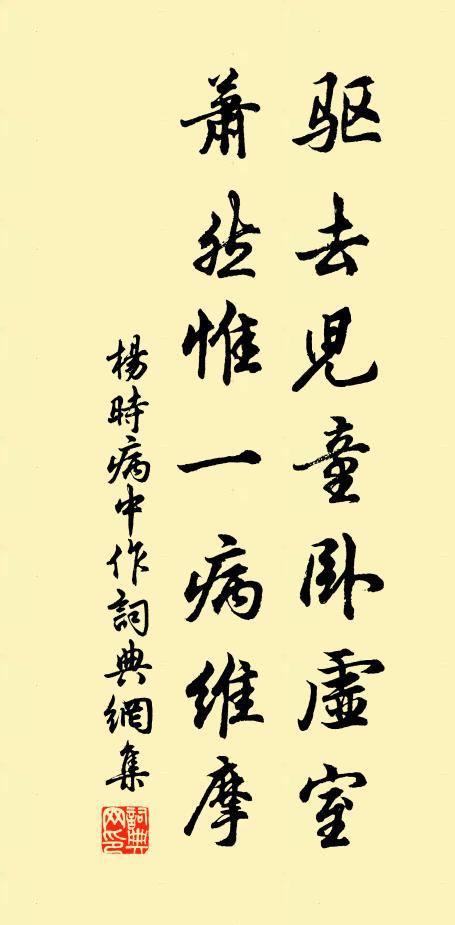 驱去児童卧虛室
蕭然惟一病維摩
楊時病中作詞典網集
詞典網印